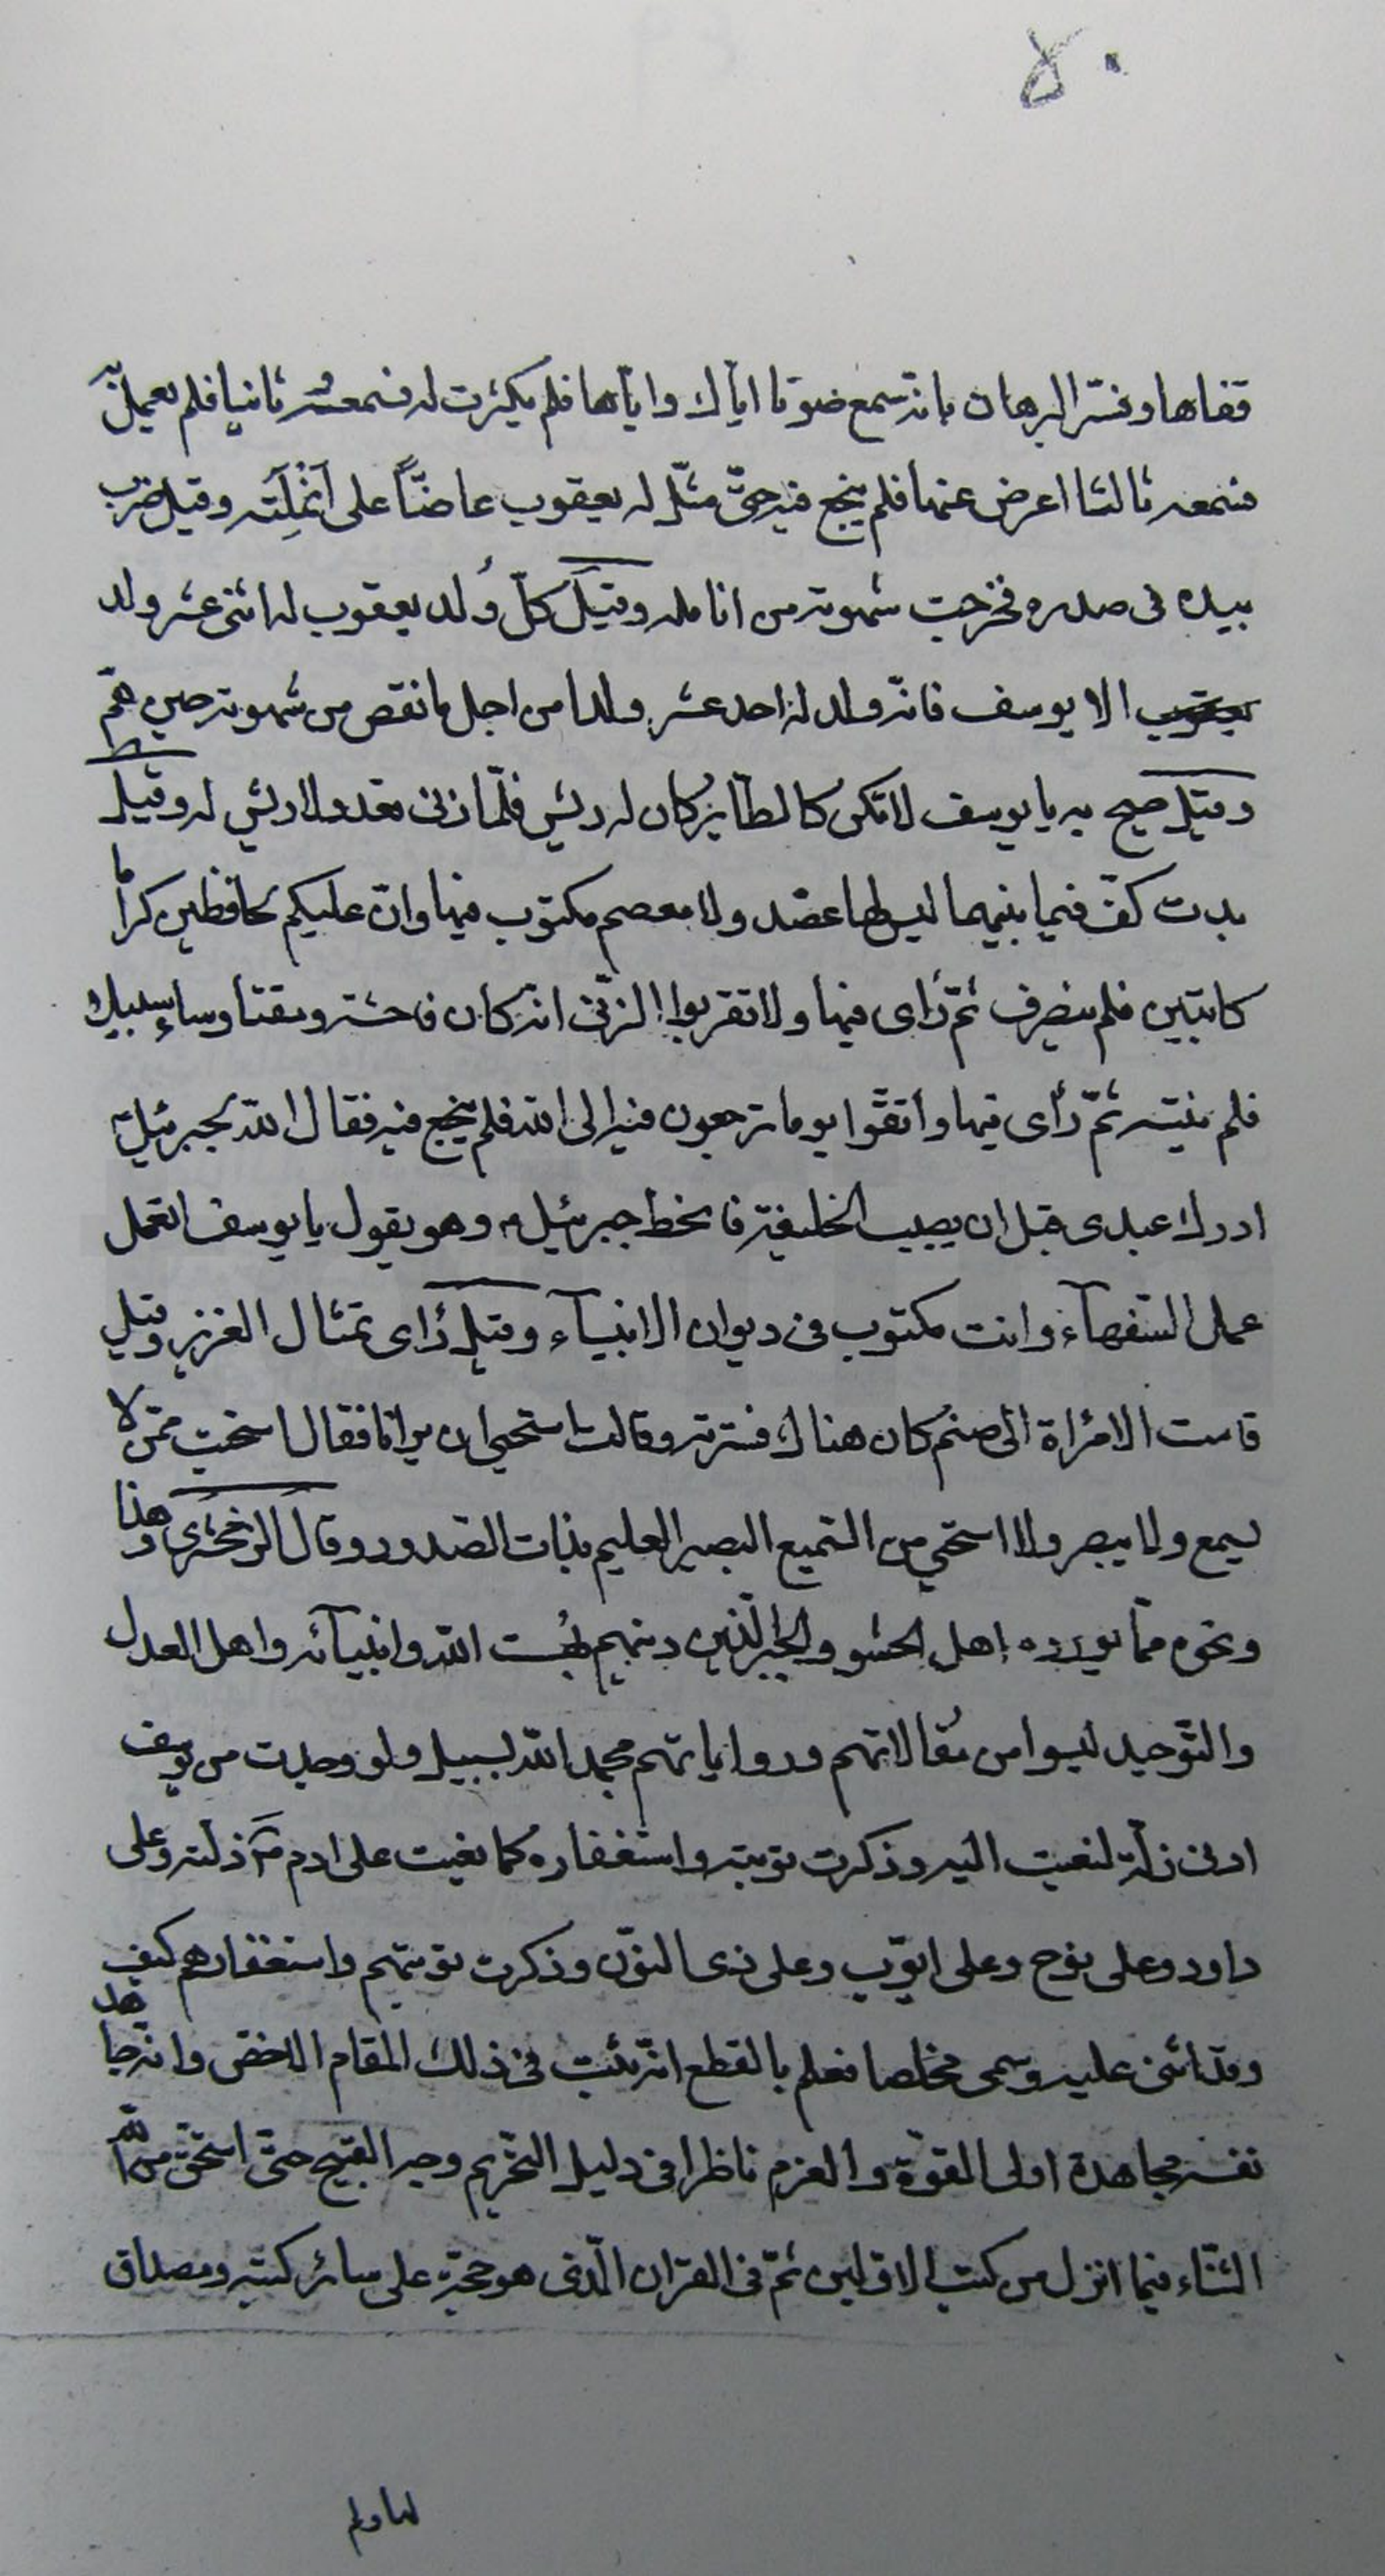 ٥٠
قفاها وفسّر البرهان بانه سمع صوتا اياك واياها فلم يكترث له فسمعه ثانيا فلم يعمل به
فسمعه ثالثا اعرض عنها فلم ينجع فيه حتّى مثّل له يعقوب عاضّاً على اَنْمِلَتَه وقيل ضرب
بيده فى صدره فخرجت شهوته من انامله وقيل كلّ وُلد يعقوب له اثنى عشر ولد
الا يوسف فانّه ولد له احد عشر ولدا من اجل ما نقص من شهوته حين همّ
وقيل صيح به يا يوسف لا تكن كالطاير كان له ريش فلمّا زنى قعد ولا ريش له وقيل
بدت كفّ فيما بينهما ليس لها عضد ولا معصم مكتوب فيها وانّ عليكم لحافظين كراما
كاتبين فلم ينصرف ثمّ رأى فيها ولا تقربوا الزنى انه كان فاحشة ومقتا وساء سبيلا
فلم ينته ثمّ رأى فيها واتقوا يوما ترجعون فيه الى الله فلم ينجع فيه فقال الله لجبرئيل
ادرك عبدى قبل ان يصيب الخطيئة فانحط جبرئيل وهو يقول يا يوسف اتعمل
عمل السّفهآء وانت مكتوب فى ديوان الانبيآء وقيل رأى تمثال العزيز وقيل
قامت الامرأة الى صنم كان هناك فسترته وقالت استحيى ان يرانا فقال استحيت ممّن لا
يسمع ولا يبصر ولا استحي من السّميع البصير العليم بذات الصّدور وقال الزمخشرى وهذا
ونحوه ممّا يورده اهل الحشو والجبر الّذين دينهم بُهت الله وانبيآئه واهل العدل
والتّوحيد ليسوا من مقالاتهم ورواياتهم بحمد الله بسبيل ولو وجدت من يوسف
ادنى زلّة لنعيت اليه وذكرت توبته واستغفاره كما نعيت على ادم زلته وعلى
داود وعلى نوح وعلى ايّوب وعلى ذى النوّن وذكرت توبتهم واستغفارهم كيف
وقد اثنى عليه وسمى مخلصا فعلم بالقطع انّه ثبت فى ذلك المقام الدحض وانه جاهد
نفسه مجاهدة اولى القوّة والعزم ناظرا فى دليل التّحريم وجه القبيح حتّى استحقّ من الله
الثّناء فيما انزل من كتب الاوّلين ثمّ فى القران الّذى هو حجّة على سائر كتبه ومصداق
لها ولم